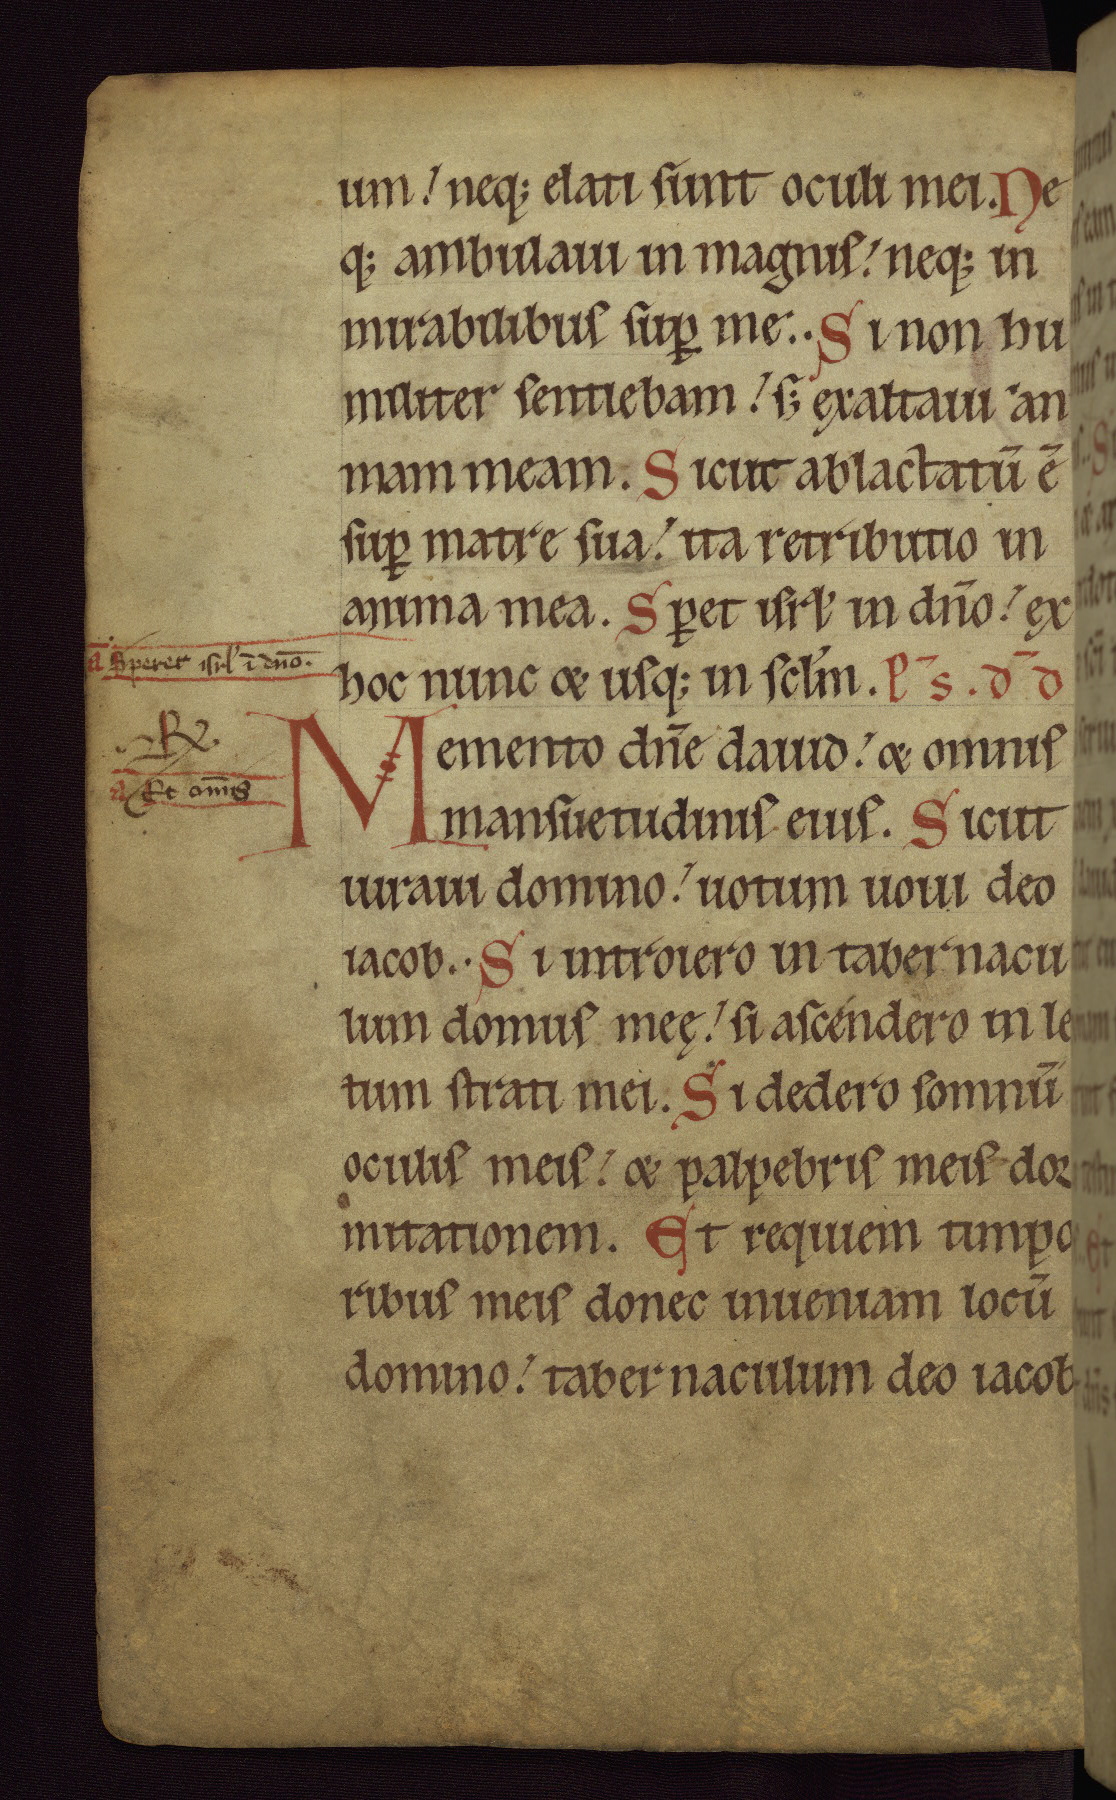 um! neq; elati sunt oculi mei. Ne
q; ambulaui in magnis! neq; in
mirabilibus sup̱ me.. Si non hu
militer sentiebam! s; exaltaui an
mam meam. Sicut ablactatū ē
sup̱ matre sua! ita retributio in
anima mea. Sp̱et isrl̓ in dn̄o! ex
a Speret isrl̓ ī dn̄o.
hoc nunc & usq; in scl̓m. p̄s. d̄d
Memento dn̄e dauid! & omnis
a Et om̄is
mansuetudinis eius. Sicut
iuraui domino! uotum uoui deo
iacob.. Si introiero in tabernacu
lum domus meę! si ascendero in lec
tum strati mei. Si dedero somnū
oculis meis! & palpebris meis dor
mitationem. Et requiem timpo
ribus meis donec inueniam locū
domino! tabernaculum deo iacob